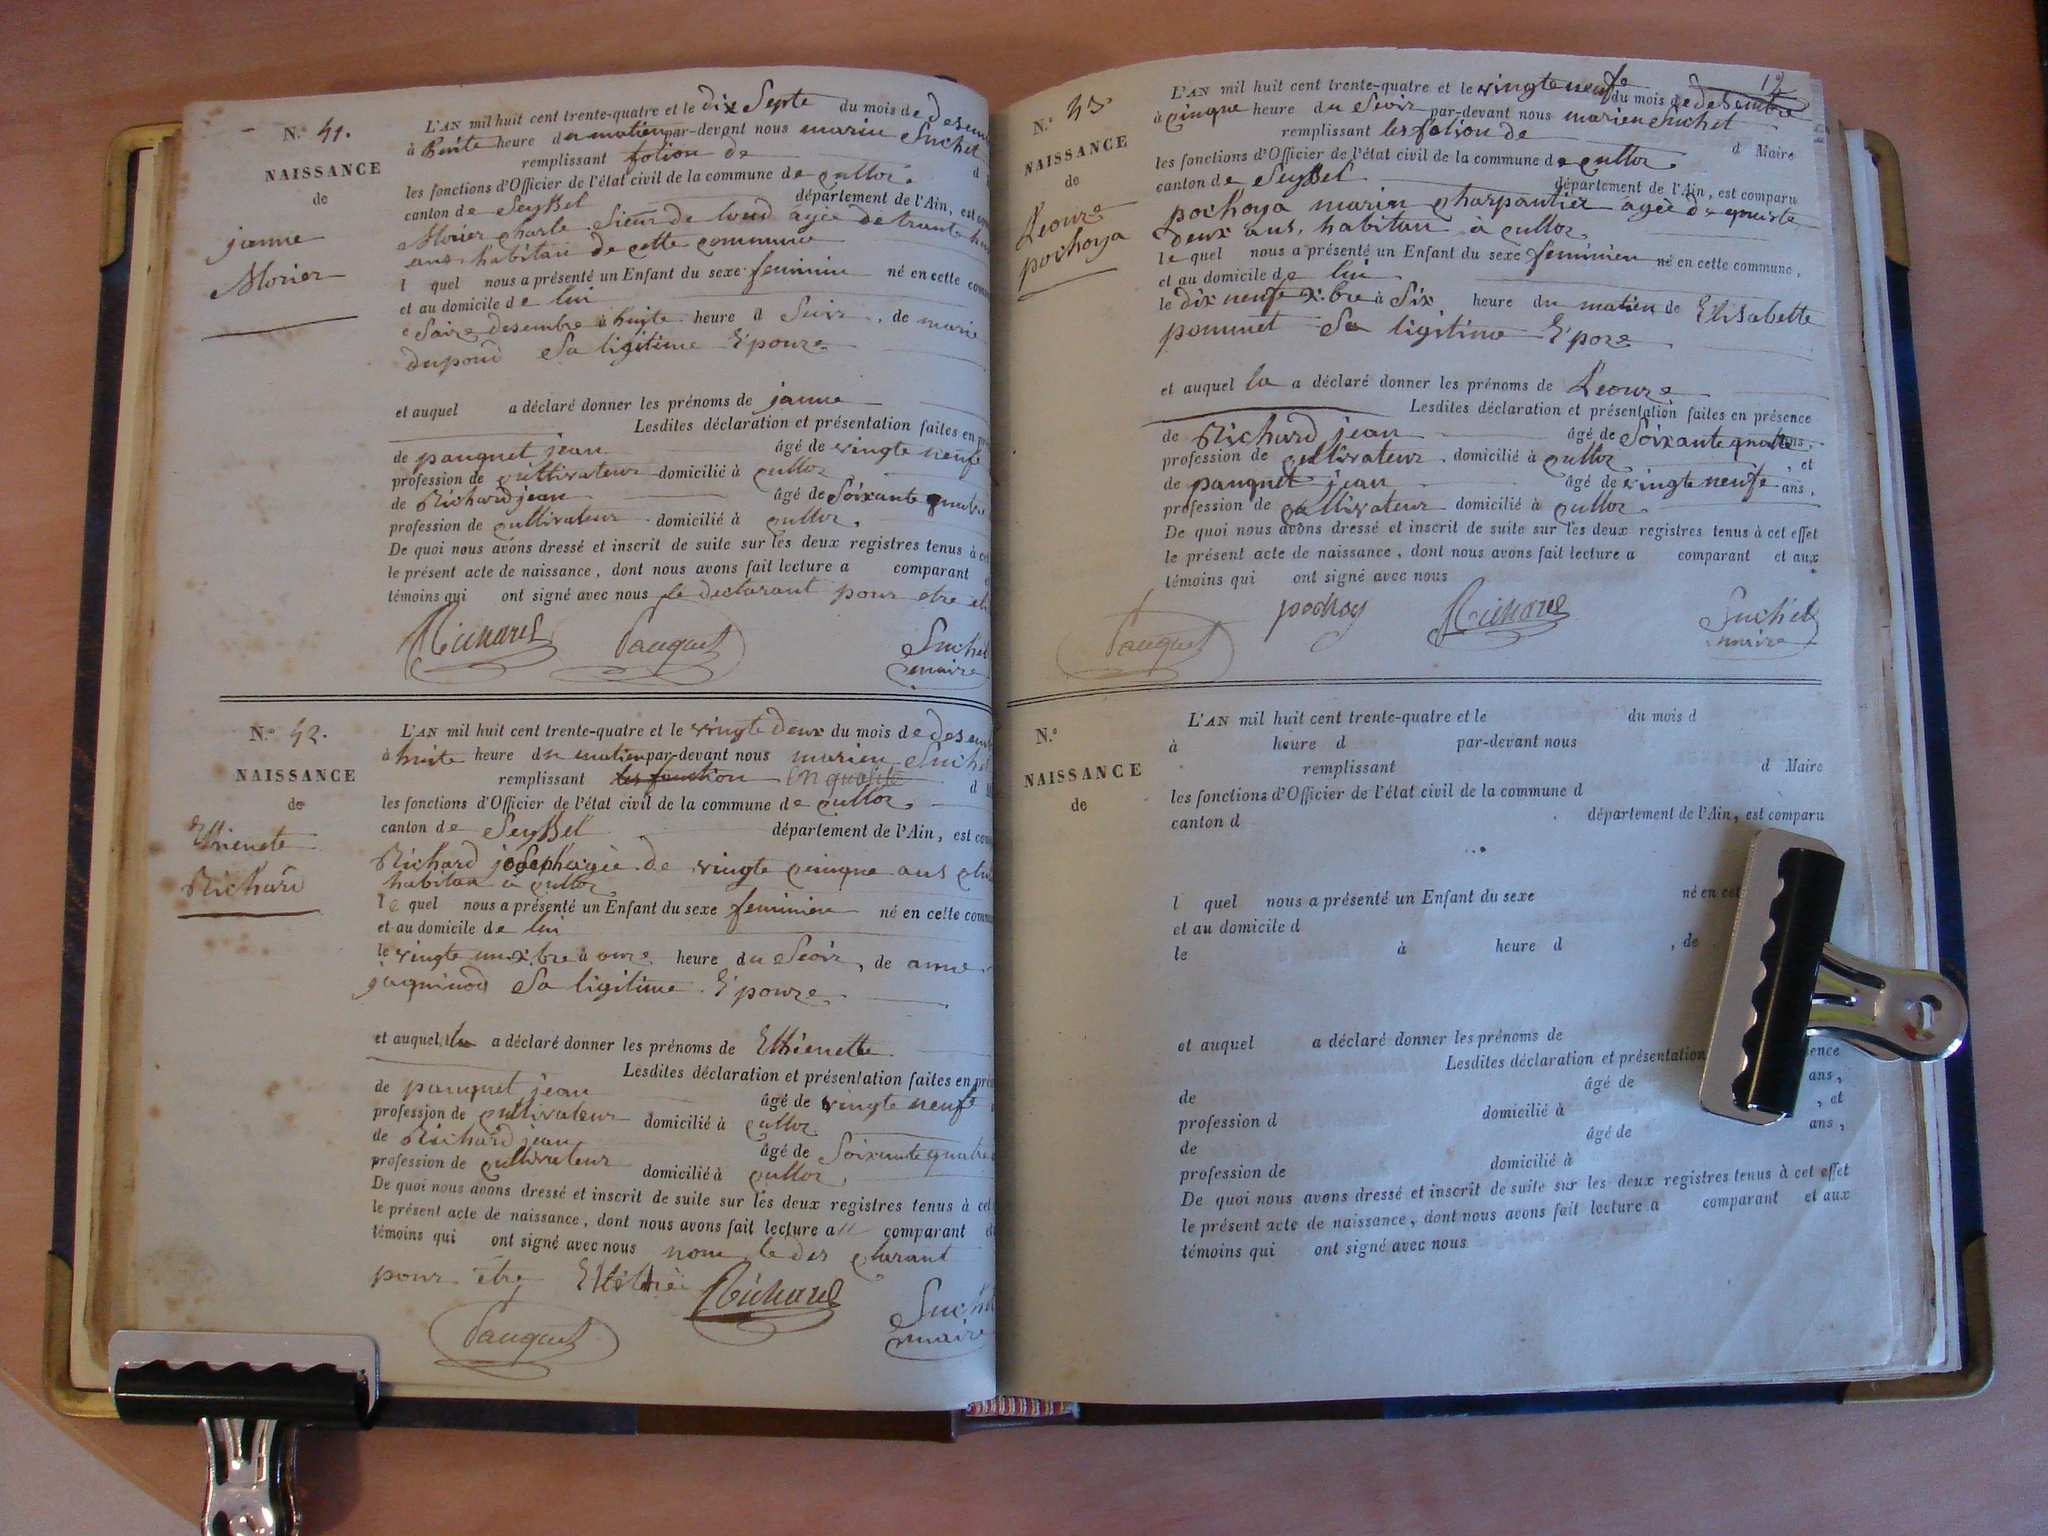 N.º 41.
NAISSANCE
de
janne
Morier
L'AN mil huit cent trente-quatre et le dix Septe du mois de desem
à huite heure du matien par-devant nous marien Suchet
remplissant fotion de d
les fonctions d'Officier de l'état civil de la commune de culloz.
canton de Seyssel département de l'Ain, est com
Morier charle agée de trante
ans habitan de cette commune
l quel nous a présenté un Enfant du sexe feminin né en cette com
et au domicile de lui
desembre à huite heure d Seoir, de marie
dupond Sa ligitime Epouze
et auquel a déclaré donner les prénoms de janne
Lesdites déclaration et présentation faites en pré
de pauquet jean âgé de vingte neufe
profession de cultivateur domicilié à culloz
de Richard jean âgé de Soixante quatre
profession de cultivateur domicilié à culloz.
De quoi nous avons dressé et inscrit de suite sur les deux registres tenus à cet
le présent acte de naissance, dont nous avons fait lecture a comparant e
témoins qui ont signé avec nous le declarant pour etre
Richard Pauquet Suchet
maire
N.º 42.
NAISSANCE
de
Ethienete
Richard
L'AN mil huit cent trente-quatre et le vingte deux du mois de desem
à huite heure du matien par-devant nous marien Suchet
remplissant les fonction En qualité d
les fonctions d'Officier de l'état civil de la commune de culloz.
canton de Seyssel département de l'Ain, est com
Richard joseph agée de vingte cinque ans
habitan à culloz
le quel nous a présenté un Enfant du sexe feminien né en cette commu
et au domicile de lui
le vingte un x.bre à onze heure du Seoir, de anne
jaquinod Sa ligitime Epouze
et auquel la a déclaré donner les prénoms de Ethienette
Lesdites déclaration et présentation faites en pré
de pauquet jean âgé de vingte neufe
profession de cultivateur domicilié à culloz
de Richard jean âgé de Soixante quatre
profession de cultivateur domicilié à culloz
De quoi nous avons dressé et inscrit de suite sur les deux registres tenus à cet
le présent acte de naissance, dont nous avons fait lecture au comparant e
témoins qui ont signé avec nous non le des clarant
pour etre Richard Suchet
Pauquet maire
12
N.º 43.
NAISSANCE
de
Leouze
pochoya
L'AN mil huit cent trente-quatre et le vingte neufe du mois de desembre
à cinque heure du Seoir par-devant nous marien Suchet
remplissant les fotion de d Maire
les fonctions d'Officier de l'état civil de la commune de culloz.
canton de Seyssel département de l'Ain, est comparu
pochoya marin charpantier agée de
deux ans, habitan à culloz
le quel nous a présenté un Enfant du sexe feminien né en cette commune,
et au domicile de lui
le dix neufe x.bre à Six heure du matien de Elisabette
pommet Sa ligitime Epoze
et auquel la a déclaré donner les prénoms de Leouze
Lesdites déclaration et présentation faites en présence
de Richard jean âgé de Soixante quatre ans,
profession de cultivateur domicilié à culloz , et
de pauquet jean âgé de vingte neufe ans,
profession de cultivateur domicilié à culloz.
De quoi nous avons dressé et inscrit de suite sur les deux registres tenus à cet effet
le présent acte de naissance, dont nous avons fait lecture a comparant et aux
témoins qui ont signé avec nous
Pauquet pochoy Richard Suchet
maire
N.º
NAISSANCE
de
L'AN mil huit cent trente-quatre et le du mois d
à heure d par-devant nous
remplissant d Maire
les fonctions d'Officier de l'état civil de la commune d
canton d département de l'Ain, est comparu
l quel nous a présenté un Enfant du sexe né en cet
et au domicile d
le à heure d , de
et auquel a déclaré donner les prénoms de
Lesdites déclaration et présentation ence
de âgé de ans,
profession d domicilié à , et
de âgé de ans,
profession de domicilié à
De quoi nous avons dressé et inscrit de suite sur les deux registres tenus à cet effet
le présent acte de naissance, dont nous avons fait lecture a comparant et aux
témoins qui ont signé avec nous